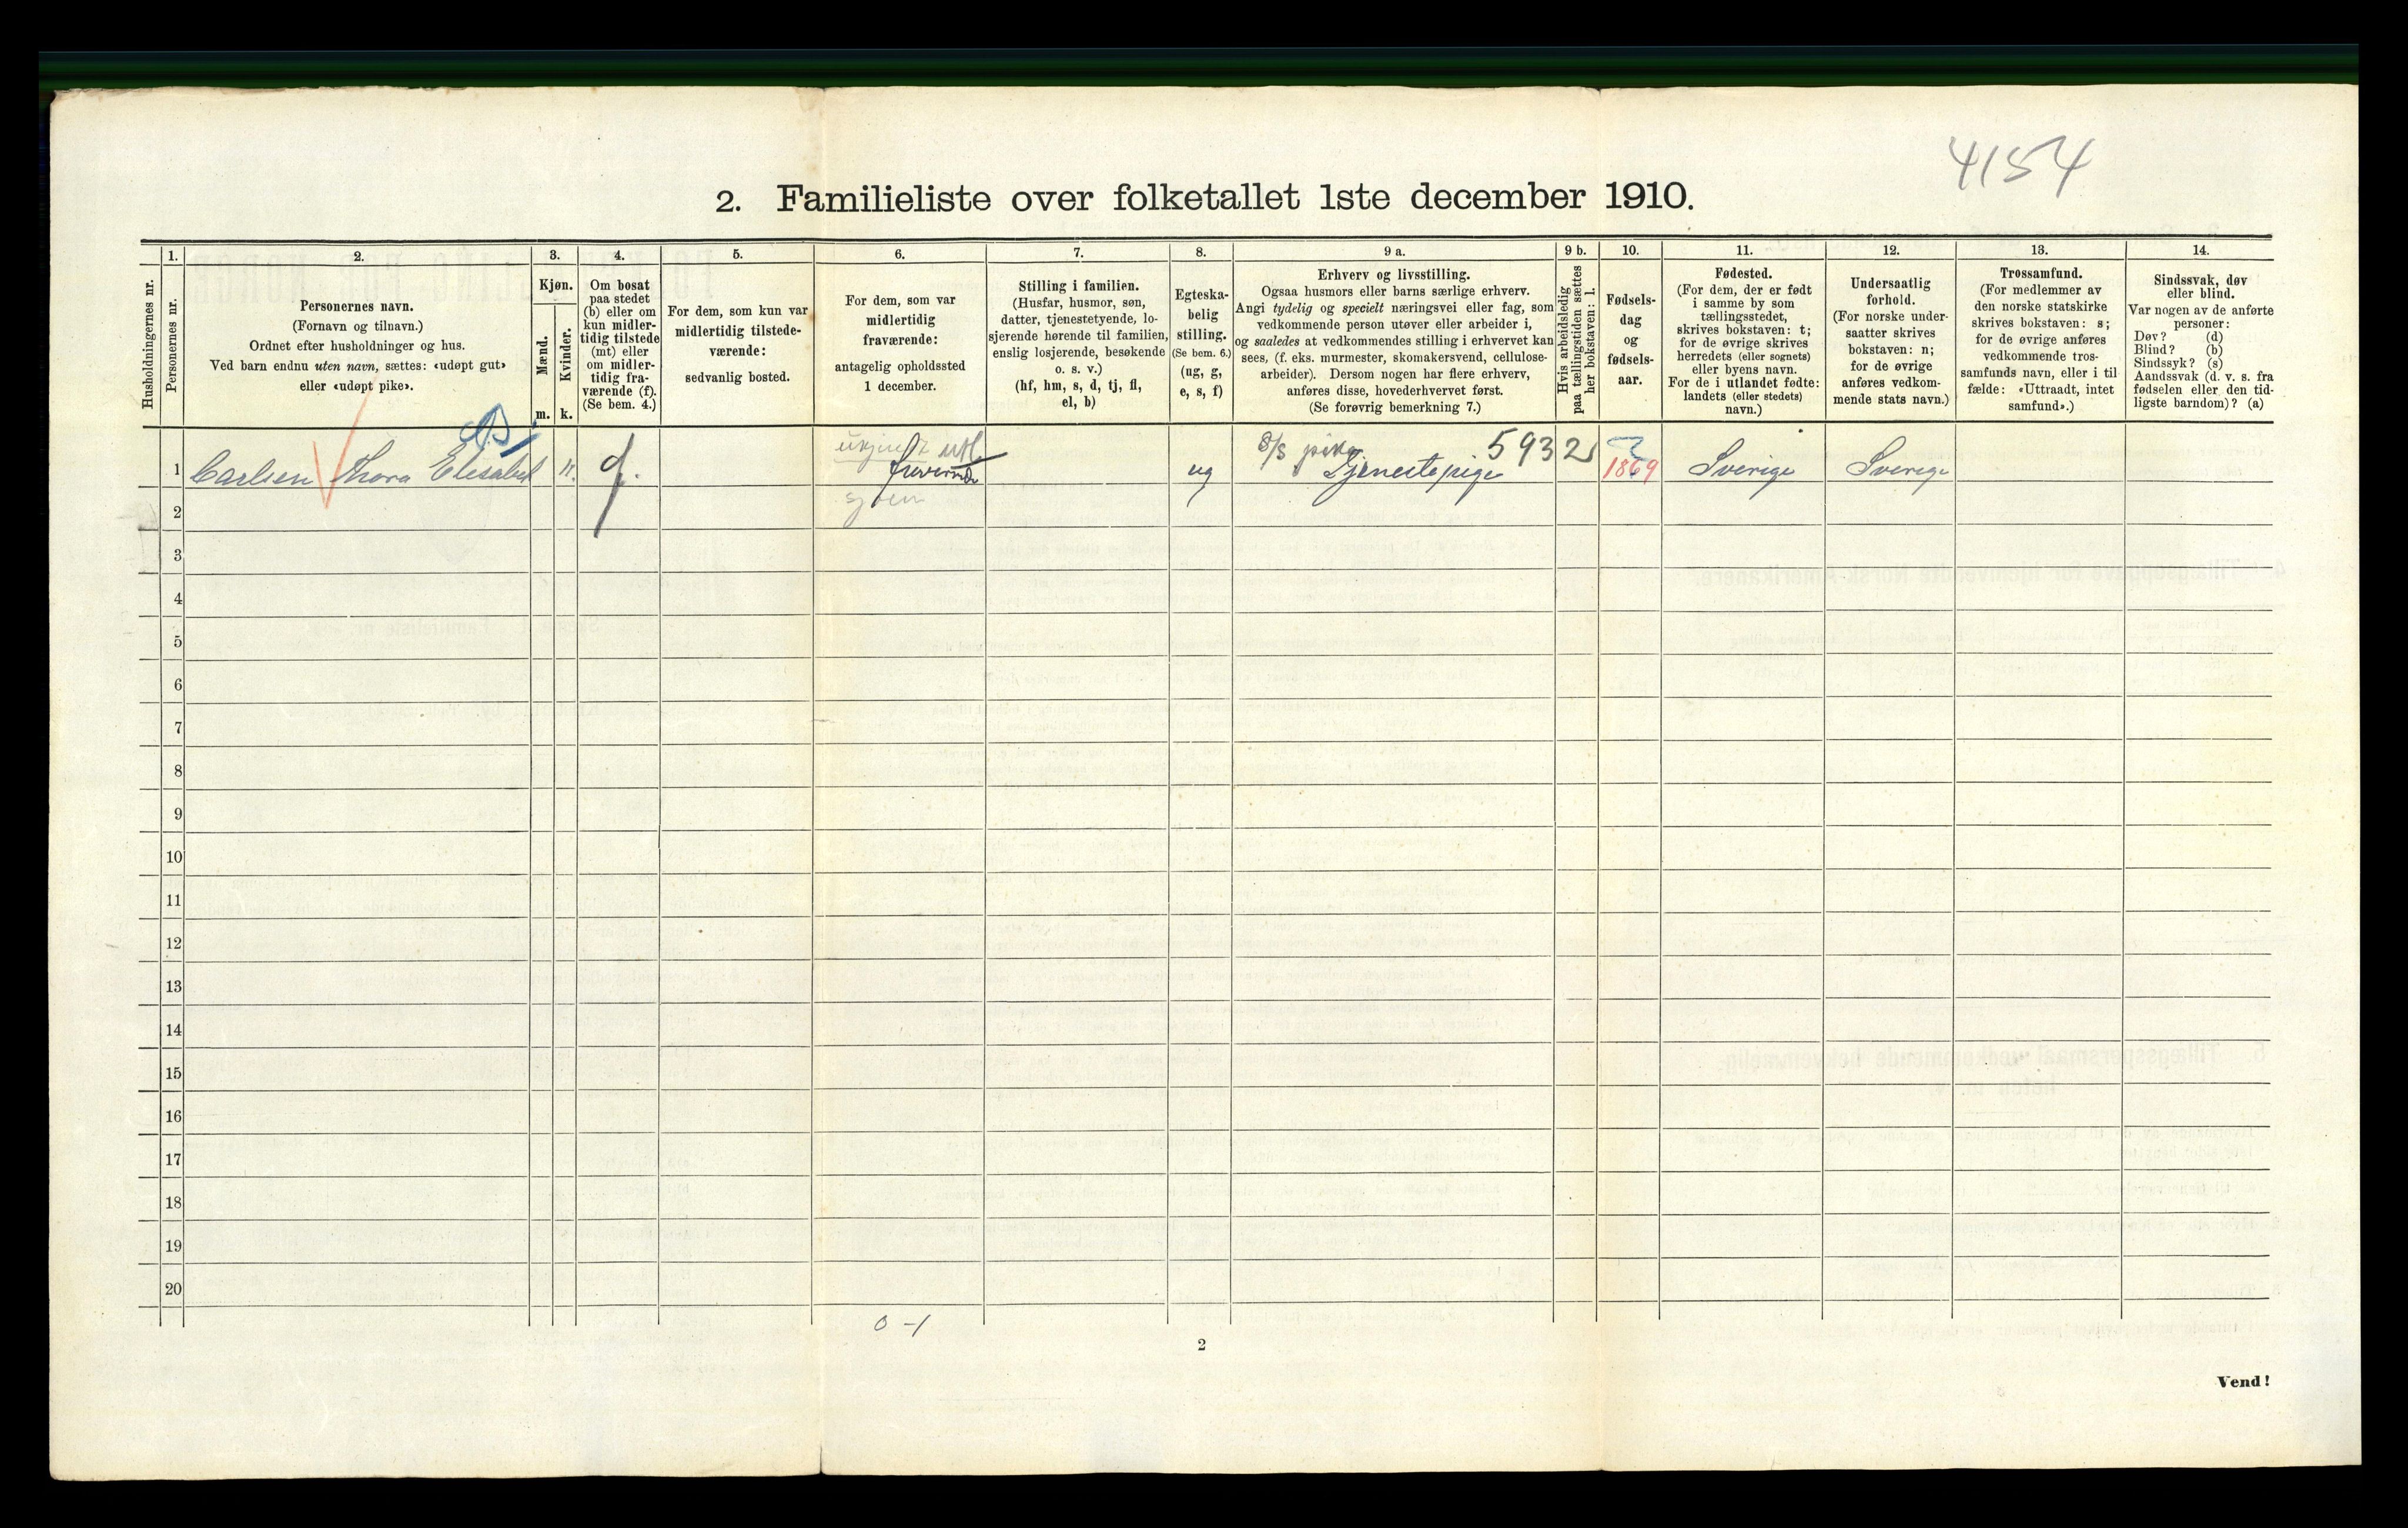 4154
2. Familieliste over folketallet 1ste december 1910.
1. 2. 3. 4. 5. 6. 7. 8. 9 a. 9 b. 10. 11. 12. 13. 14.
Husholdningernes nr.
Personernes nr.
Personernes navn.
(Fornavn og tilnavn.)
Ordnet efter husholdninger og hus.
Ved barn endnu uten navn, sættes: «udøpt gut»
eller «udøpt pike».
Kjøn.
Mænd.
m.
Kvinder.
k.
Om bosat
paa stedet
(b) eller om
kun midler-
tidig tilstede
(mt) eller
om midler-
tidig fra-
værende (f).
(Se bem. 4.)
For dem, som kun var
midlertidig tilstede-
værende:
sedvanlig bosted.
For dem, som var
midlertidig
fraværende:
antagelig opholdssted
1 december.
Stilling i familien.
(Husfar, husmor, søn,
datter, tjenestetyende, lo-
sjerende hørende til familien,
enslig losjerende, besøkende
o. s. v.)
(hf, hm, s, d, tj, fl,
el, b)
Egteska-
belig
stilling.
(Se bem. 6.)
(ug, g,
e, s, f)
Erhverv og livsstilling.
Ogsaa husmors eller barns særlige erhverv.
Angi tydelig og specielt næringsvei eller fag, som
vedkommende person utøver eller arbeider i,
og saaledes at vedkommendes stilling i erhvervet kan
sees, (f. eks. murmester, skomakersvend, cellulose-
arbeider). Dersom nogen har flere erhverv,
anføres disse, hovederhvervet først.
(Se forøvrig bemerkning 7.)
Hvis arbeidsledig
paa tællingstiden sættes
her bokstaven: l.
Fødsels-
dag
og
fødsels-
aar.
Fødested.
(For dem, der er født
i samme by som
tællingsstedet,
skrives bokstaven: t;
for de øvrige skrives
herredets (eller sognets)
eller byens navn.
For de i utlandet fødte:
landets (eller stedets)
navn.)
Undersaatlig
forhold.
(For norske under-
saatter skrives
bokstaven: n;
for de øvrige
anføres vedkom-
mende stats navn.)
Trossamfund.
(For medlemmer av
den norske statskirke
skrives bokstaven: s;
for de øvrige anføres
vedkommende tros-
samfunds navn, eller i til-
fælde: «Uttraadt, intet
samfund».)
Sindssvak, døv
eller blind.
Var nogen av de anførte
personer:
Døv? (d)
Blind? (b)
Sindssyk? (s)
Aandssvak (d. v. s. fra
fødselen eller den tid-
ligste barndom)? (a)
ukjendt utl. S/S pike 5932
1 Carlsen Thora Elisabet k. f. ug Tjenestepige 1869 Sverige Sverige
2
3
4
5
6
7
8
9
10
11
12
13
14
15
16
17
18
19
20
0 - 1
2
Vend!